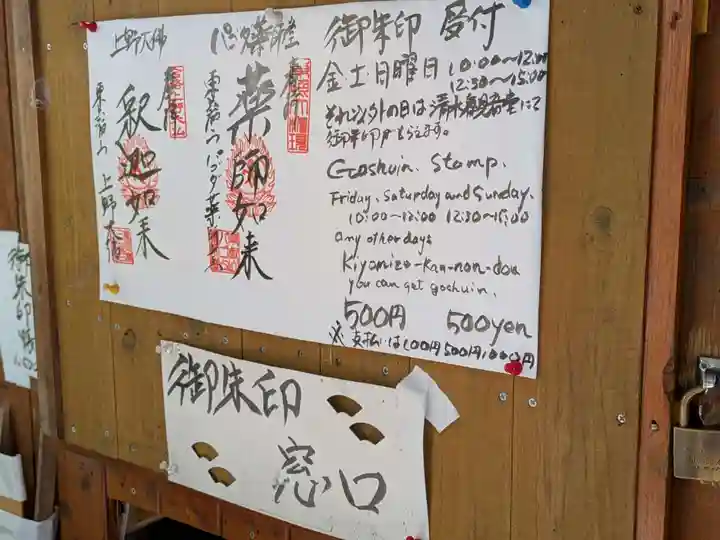 御朱印 受付
金土日曜日 10:00〜12:00
12:30〜15:00
それ以外の日は清水観音堂にて
御朱印
Goshuin. Stamp.
Friday, Saturday and Sunday.
10:00〜12:00 12:30〜15:00
any other days
Kiyomizu-kan-non-dou
you can get goshuin.
500円 500yen
※支払いは100円500円1000円
パゴダ薬師堂
薬師如来
東叡山パゴダ薬
上野大佛
釈迦如来
東叡山 上野大佛
御朱印
窓口
御朱印